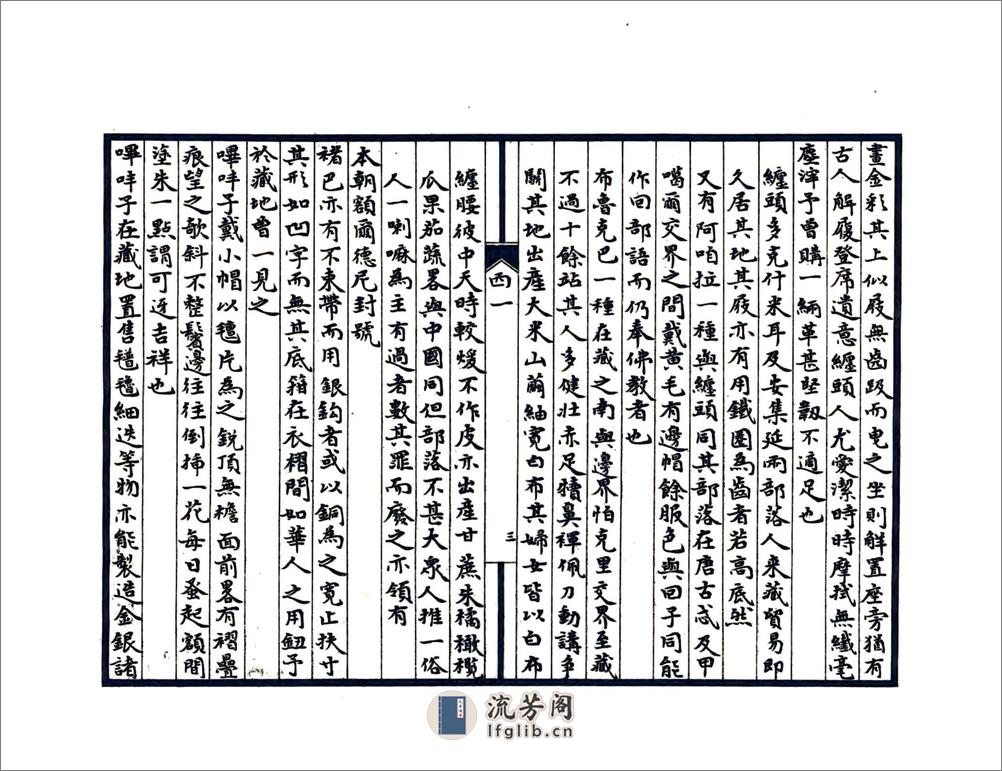 畫金彩其上似屐無齒趿而曳之坐則解置座旁猶有
古人解履登席遺意纏頭人尤愛潔時時摩拭無纖毫
塵滓予曾購一緉革甚堅韌不適足也
纏頭多克什米耳及安集延兩部落人來藏貿易即
久居其地其屐亦有用鐵圈為齒者若高底然
又有阿咱拉一種與纏頭同其部落在唐古忒及甲
噶爾交界之間戴黃毛有邊帽餘服色與回子同能
作回部語而仍奉佛教者也
布魯克巴一種在藏之南與邊界怕克里交界至藏
不過十餘站其人多健壯赤足犢鼻褌佩刀動講爭
鬭其地出產大米山繭紬寬白布其婦女皆以白布
西一
三
纏腰彼中天時較煖不作皮亦出產甘蔗朱橘橄欖
瓜果茄蔬畧與中國同但部落不甚大衆人推一俗
人一喇嘛為主有過者數其罪而廢之亦領有
本朝額爾德尼封號
褚巴亦有不束帶而用銀鈎者或以銅為之寬止扶寸
其形如凹字而無其底籍在衣褶間如華人之用鈕予
於藏地曾一見之
嗶咩子戴小帽以氆片為之銳頂無檐面前畧有褶疊
痕望之欹斜不整鬢邊往往倒插一花每日蚤起額間
塗朱一點謂可迓吉祥也
嗶咩子在藏地置售氆氌細迭等物亦能製造金銀諸
流芳阁
lfglib.cn